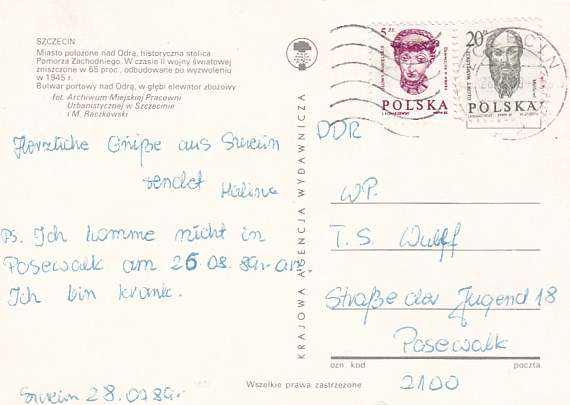 SZCZECIN
Miasto położone nad Odrą, historyczna stolica
Pomorza Zachodniego. W czasie II wojny światowej
zniszczone w 65 proc., odbudowane po wyzwoleniu
w 1945 r
Bulwar portowy nad Odrą, w głębi elewator zbożowy
fot. Archiwum Miejskiej Pracowni
Urbanistycznej w Szczecinie
i M. Raczkowski
Herzliche Grüße aus
sendet
Halina
Ps. Ich komme nicht in
Posewalk am 26.08.89r an.
Ich bin krank.
28.07.89r
KRAJOWA AGENCJA WYDAWNICZA
5 ZŁ
POLSKA
20 ZŁ
POLSKA
DDR
WP.
T. S. Wulff
Straße der Jugend 18
Posewalk
ozn. kod. poczta
2100
Wszelkie prawa zastrzeżone